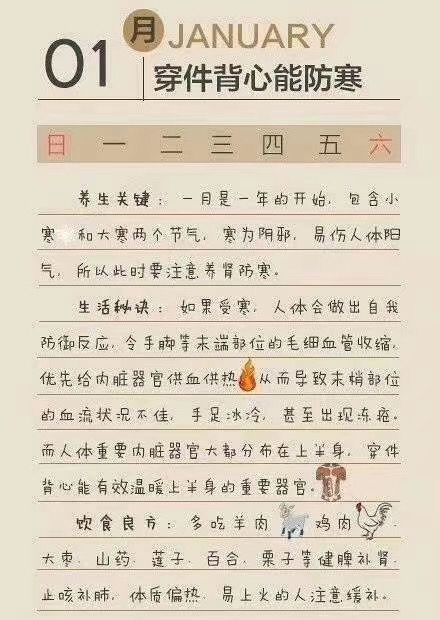 01 月 JANUARY
穿件背心能防寒
日 一 二 三 四 五 六
养生关键：一月是一年的开始，包含小
寒 和大寒两个节气，寒为阴邪，易伤人体阳
气，所以此时要注意养肾防寒。
生活秘诀：如果受寒，人体会做出自我
防御反应，令手脚等末端部位的毛细血管收缩，
优先给内脏器官供血供热 从而导致末梢部位
的血流状况不佳，手足冰冷，甚至出现冻疮。
而人体重要内脏器官大都分布在上半身，穿件
背心能有效温暖上半身的重要器官。
饮食良方：多吃羊肉 鸡肉 .
大枣．山药．莲子．百合．栗子等健脾补肾，
止咳补肺，体质偏热．易上火的人注意缓补。